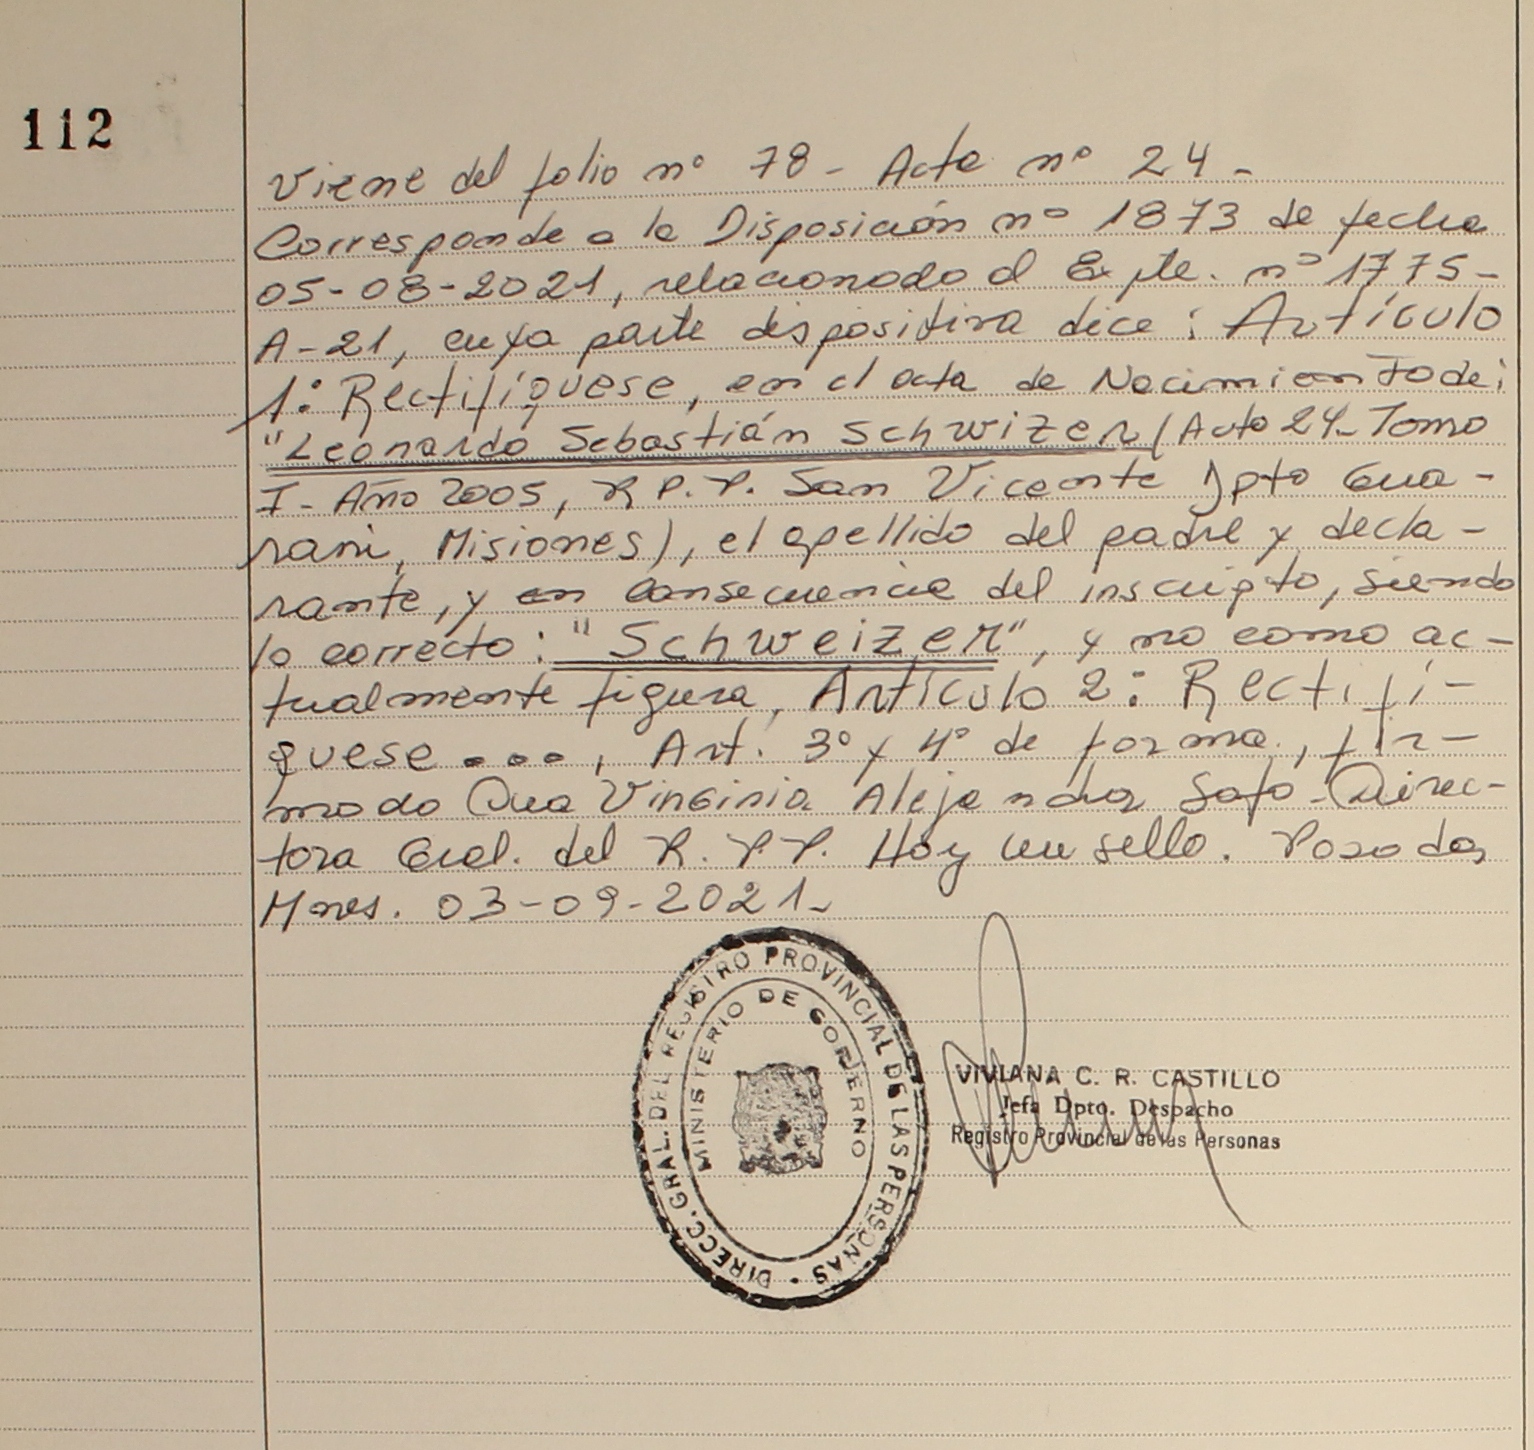 112
Viene del folio nº 78 - Acta nº 24 -
Corresponde a la Disposición nº 1873 de fecha
05-08-2021, relacionado al Expte. nº 1775-
A-21, cuya parte dispositiva dice: Artículo
1: Rectifíquese, en el acta de Nacimiento de:
"Leonardo Sebastián Schwizer (Acta 24- Tomo
I- Año 2005, R.P.P. San Vicente Dpto Gua-
raní, Misiones), el apellido del padre y decla-
rante, y en consecuencia del inscripto, siendo
lo correcto: "Schweizer", y no como ac-
tualmente figura, Artículo 2: Rectifí-
quese..., Art. 3º y 4º de forma, fir-
mado Virginia Alejandra - Direc-
tora Gral. del R.P.P. Hay un sello. Posadas
Mnes. 03-09-2021-
DIRECC. GRAL. DEL REGISTRO PROVINCIAL DE LAS PERSONAS
MINISTERIO DE GOBIERNO
VIVIANA C. R. CASTILLO
Jefa Dpto. Despacho
Registro Provincial de las Personas